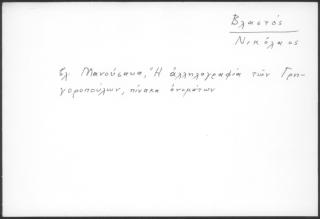 Βλαστός
Νικόλαος
βλ. Μανούσακα, "Ἡ ἀλληλογραφία τῶν Γρη-
γοροπούλων, πίνακα ὀνομάτων